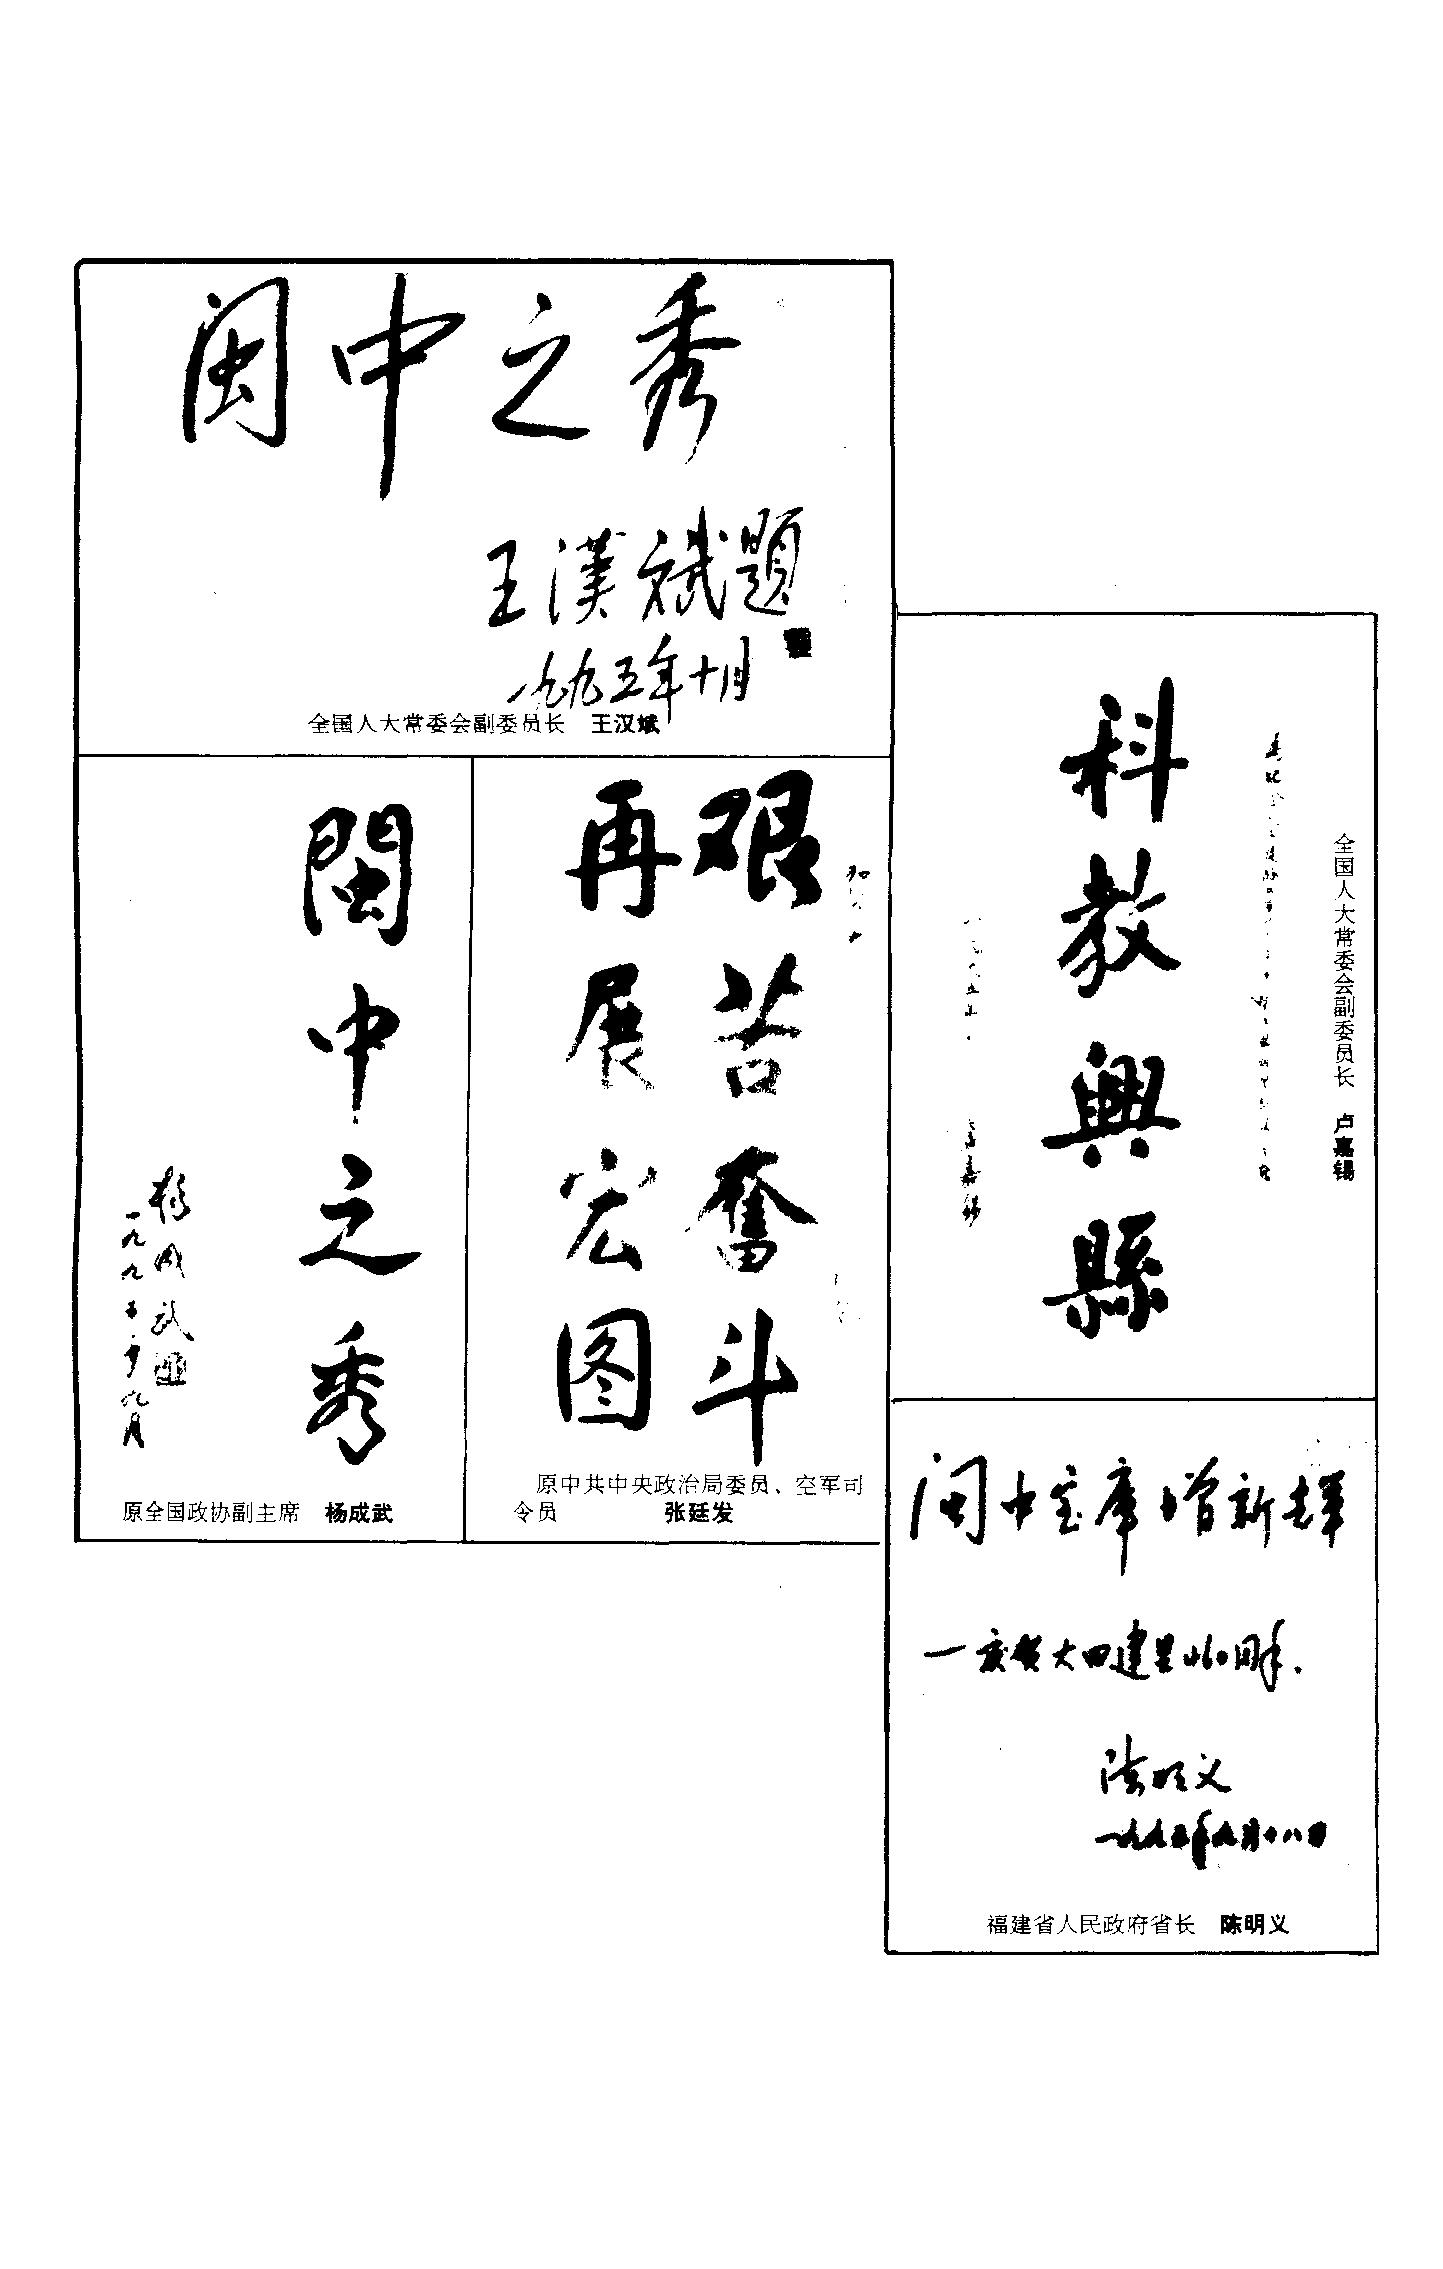 闽中之秀
王漢斌題
一九九五年十月
全国人大常委会副委员长 王汉斌
閩中之秀
杨成武
一九九五年九月
原全国政协副主席 杨成武
艰苦奋斗
再展宏图
原中共中央政治局委员、空军司
令员 张廷发
科教興縣
全国人大常委会副委员长 卢嘉锡
闽中宝库增新辉
一庆贺大田建县460周年.
陈明义
一九九五年九月十八日
福建省人民政府省长 陈明义